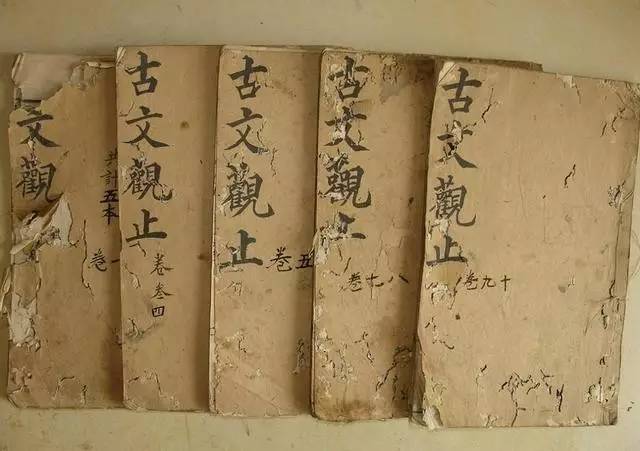 文觀
共計五本
卷一
古文觀止
卷叁四
古文觀止
卷五
古文觀止
卷七八
古文觀止
卷九十